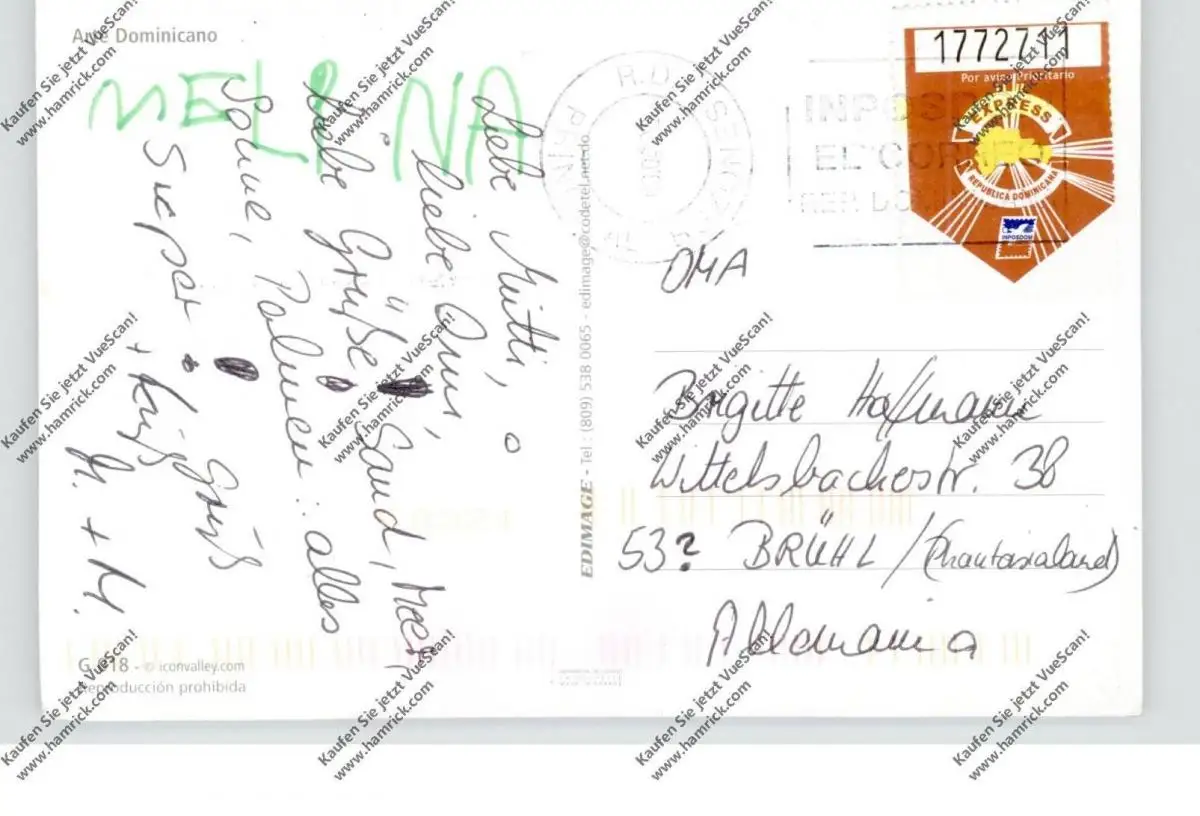 Arte Dominicano
MELINA
Liebe Mutti,
liebe Omi,
liebe Grüße
Sand, Meer,
Sonne, Palmen: alles
super
+
H. + M.
G 418 - © iconvalley.com
Reproducción prohibida
EDIMAGE - Tel : (809) 538 0065 - edimage@codetel.net.do
R.D.
INPOSDOM
EL CORREO
REP. DOMINICANA
1772711
Por avion Prioritario
EXPRESS
REPUBLICA DOMINICANA
INPOSDOM
OMA
Brigitte Hofmann
Wittelsbacherstr. 38
53? BRÜHL / (Phantasialand)
Allemania
Kaufen Sie jetzt VueScan!
www.hamrick.com